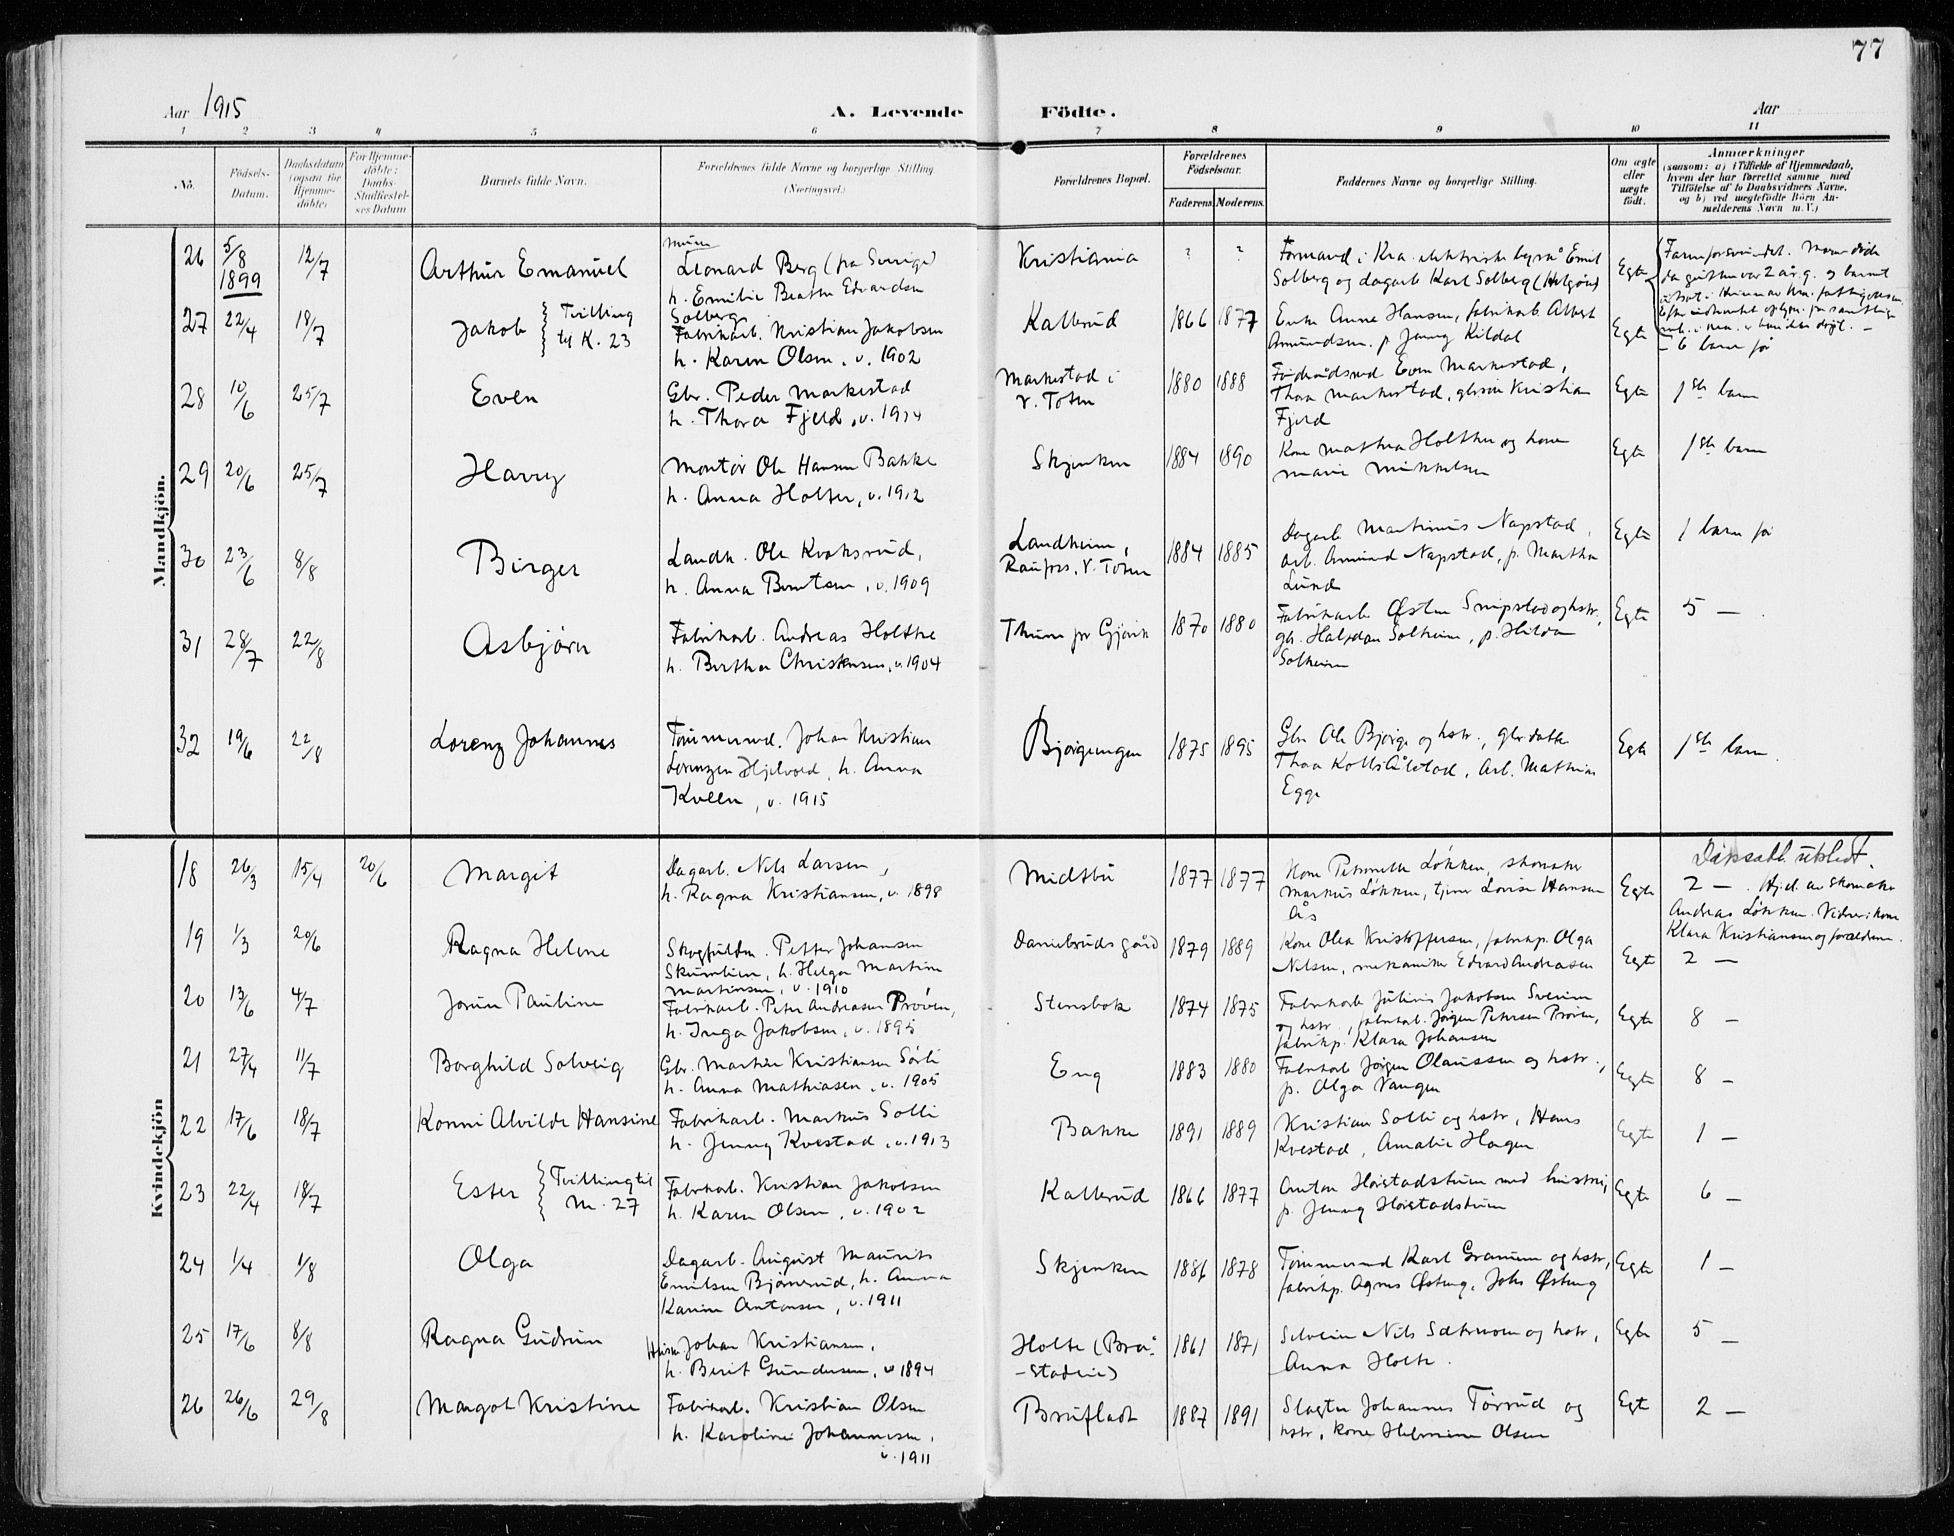 77
Aar 1915
A. Levende Fødte.
Aar
1 2 3 4 5 6 7 8 9 10 11
No.
Fødsels-Datum.
Daabsdatum (ogsaa for Hjemmedøbte)
For Hjemmedøbte: Daabs-Stadfæstelses Datum
Barnets fulde Navn.
Forældrenes fulde Navne og borgerlige Stilling (Næringsvei.)
Forældrenes Bopæl.
Forældrenes Fødselsaar.
Faderens. Moderens.
Faddernes Navne og borgerlige Stilling.
Om ægte eller uægte født.
Anmærkninger
(saasom: a) i Tilfælde af Hjemmedaab, hvem der har forrettet samme med Tilføielse af to Daabsvidners Navne, og b) ved uægtefødte Børn Anmelderens Navn m. V.)
Mandkjøn.
26 5/8 1899 12/7 Arthur Emanuel
Murer Leonard Berg (fra Sverige)
h. Emilie Beathe Edvardsen Solberg
Kristiania ? ?
Formand i Kra. elektriske byrå Emil
Solberg og dagarb. Karl Solberg
Egte
27 22/4 18/7 Jakob { Tvilling til K. 23
Fabrikarb. Kristian Jakobsen
h. Karen Olsen, v. 1902
Kallerud 1866 1877
Enke Anne Hansen, fabrikarb. Albert
Amundsen, p. Jenny Kildal
Egte
6 barn før
28 10/6 25/7 Even
Gbr. Peder Markestad
h. Thora Fjeld, v. 1914
Markestad i V. Toten 1880 1888
Føderådsmd Even Markestad,
Thea Markestad, gbrsøn Kristian
Fjeld
Egte 1ste barn
29 20/6 25/7 Harry
Montør Ole Hansen Bakke
h. Anna Holter, v. 1912
Skjenken 1884 1890
Kone Mathea Holther og kone
Marie Mikkelsen
Egte 1ste barn
30 23/6 8/8 Birger
Landh. Ole Kvaksrud,
h. Anna Berntsen, v. 1909
Landheim, Raufoss, V. Toten 1884 1885
Dagarb. Martinius Napstad,
arb. Amund Napstad, p. Martha
Lund
Egte 1 barn før
31 28/7 22/8 Asbjørn
Fabrikarb. Andreas Holthe
h. Berthe Christensen, v. 1904
Thune pr Gjøvik 1870 1880
Fabrikarb. Østen Snipstad og hstr,
gb. Halfdan Solheim, p. Hilda
Solheim
Egte 5 —
32 19/6 22/8 Lorenz Johannes
Tømmermd. Johan Kristian
Lorenzen Hjelvold, h. Anna
Kveen, v. 1915
Bjørgeungen 1875 1895
Gbr Ole Bjørge og hstr., gbrdatt.
Thea Kolls Ålstad, Arb. Mathias
Egge
Egte 1ste barn.
Kvindekjøn
18 26/3 15/4 20/6 Margit
Dagarb. Nils Larsen,
h. Ragna Kristiansen, v. 1898
Midtbu 1877 1877
Kone Petronelle Løkken, skomaker
Markus Løkken, tjener Lovise Hansen
Ås
Egte
Dåpsatt. utstedt.
2 —. Hj.d. av skomaker
Andreas Løkken. Vidner: kone
Klara Kristiansen og forældrene.
19 1/3 20/6 Ragna Helene
Skogfuldm. Petter Johansen
Skumlien, h. Helga Martine
Martinsen, v. 1910
Danielruds gård 1879 1889
Kone Olea Kristoffersen, fabrikp. Olga
Nilsen, mekaniker Edvard Andreasen
Egte 2 —
20 13/6 4/7 Jorun Pauline
Fabrikarb. Peter Andreasen Prøven,
h. Inga Jakobsen, v. 1895
Stensbok 1874 1875
Fabrikarb. Julius Jakobsen Sveum
og hstr., fabrikarb. Jørgen Petersen Prøven,
fabrikp. Klara Johansen
Egte 8 —
21 27/4 11/7 Borghild Solveig
Gbr. Martin Kristiansen Sørli
h. Anna Mathiasen, v. 1905
Eng 1883 1880
Fabrikarb. Jørgen Olaussen og hstr.,
p. Olga Vangen
Egte 8 —
22 17/6 18/7 Konni Alvilde Hansine
Fabrikarb. Markus Solli
h. Jenny Kvestad, v. 1913
Bakke 1891 1889
Kristian Solli og hstr, Hans
Kvestad, Amalie Hagen
Egte 1 —
23 22/4 18/7 Ester { Tvilling til M. 27
Fabrikarb. Kristian Jakobsen
h. Karen Olsen, v. 1902
Kallerud 1866 1877
Anton Høistadstuen med hustru,
p. Jenny Høistadstuen
Egte 6 —
24 1/4 1/8 Olga
Dagarb. August Maurits
Emilsen Bjørnerud, h. Anna
Karine Antonsen, v. 1911
Skjenken 1886 1878
Tømmermd Karl Granum og hstr,
fabrikp. Agnes Østeng, Johs Østeng
Egte 1 —
25 17/6 8/8 Ragna Gudrun
Husm Johan Kristiansen,
h. Berit Gundersen, v 1894
Holte (Bråstadlie) 1861 1871
Selveier Nils Sætermoen og hstr,
Anna Holte.
Egte 5 —
26 26/6 29/8 Margot Kristine
Fabrikarb. Kristian Olsen
h. Karoline Johannesen,
v. 1911
Brufladt 1887 1891
Slagter Johannes Tørrud og
hstr, kone Helmine Olsen
Egte 2 —